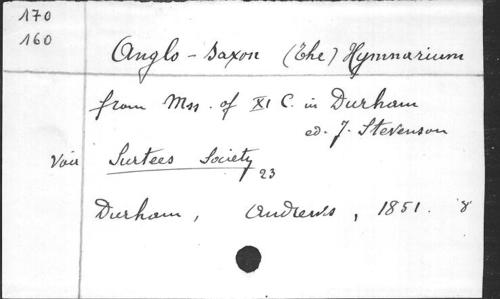 170
160
Anglo-Saxon (The) Hymnarium
from Mss. of XI C. in Durham
ed. J. Stevenson
Voir Surtees Society 23
Durham, Andrews, 1851. 8